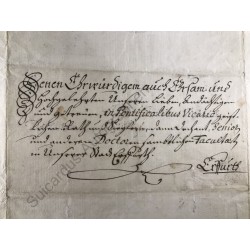 Denen Ehrwürdigem auch Ehrsam- und
Hochgelehrten Unseren lieben, Andächtigen
und getreuen, in Pontificalibus Vicario geist-
lichen Rath und, dann Dechant, Senior
und anderen Doctoren sämbtlichen Facultäten
in Unserer Stadt Erfurth.
Erfurth